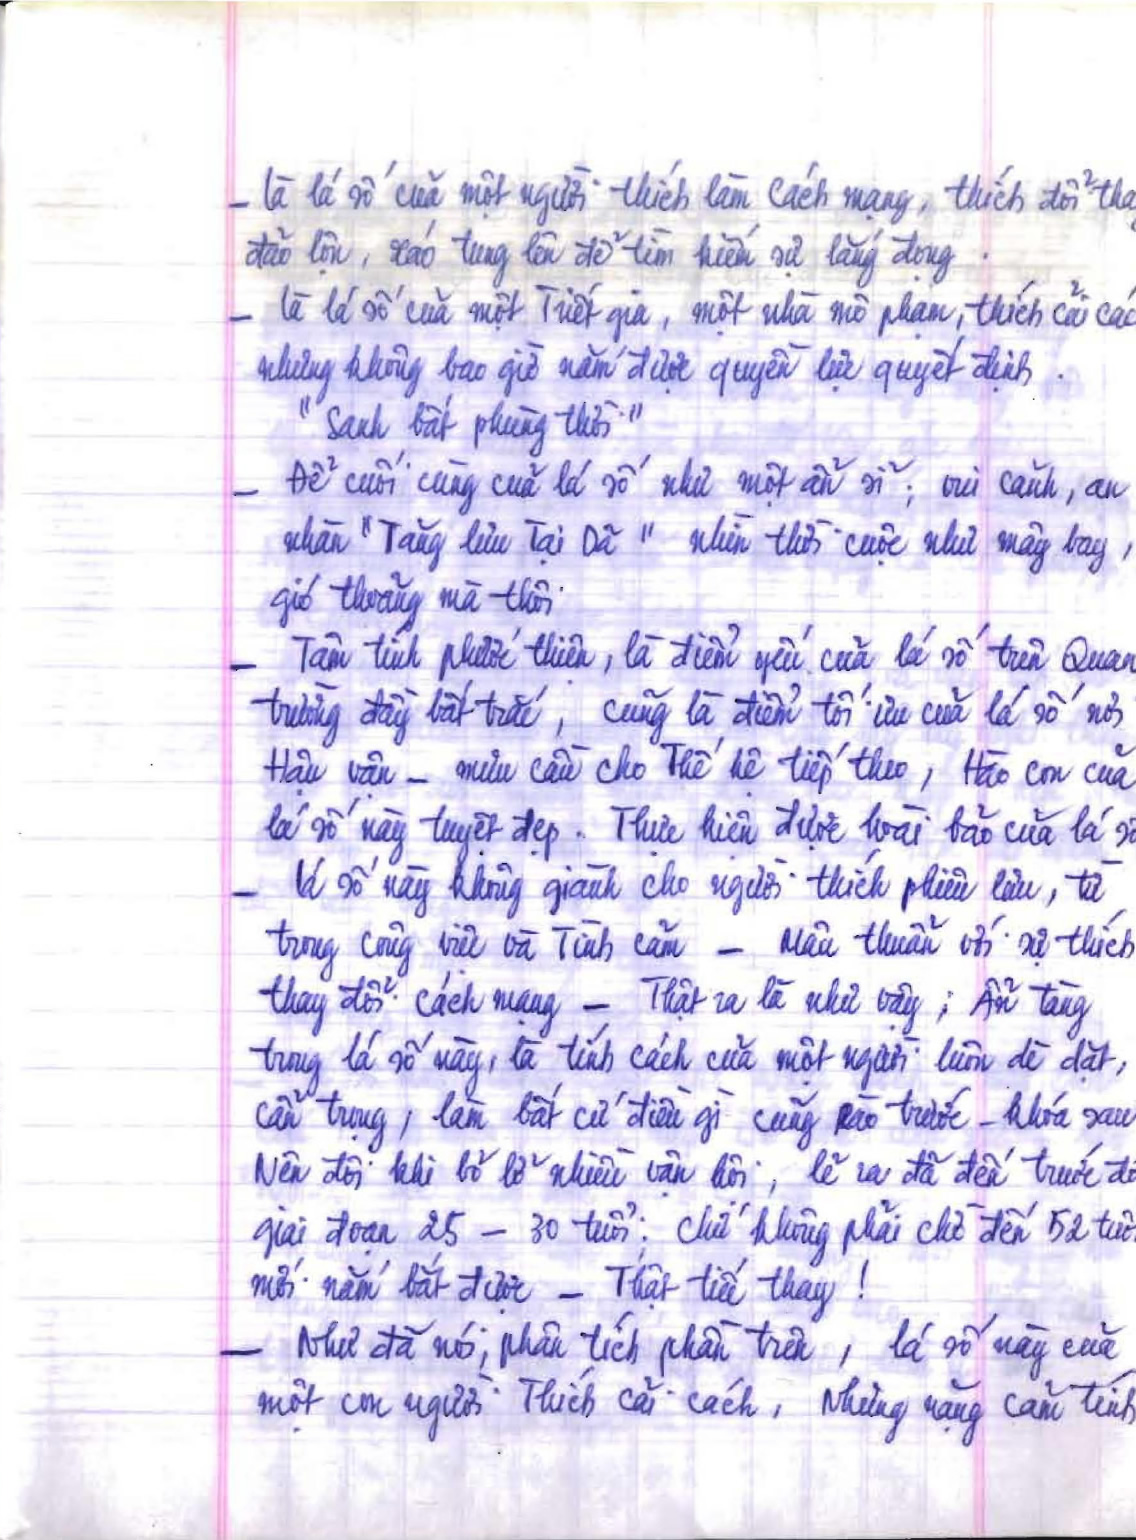 _ là lá số của một người thích làm Cách mạng, thích đổi thay
đảo lộn, xáo tung lên để tìm kiếm sự lắng đọng.
_ là lá số của một Triết gia, một nhà mô phạm, thích cải các
nhưng không bao giờ nắm được quyền lực quyết định.
"Sanh bất phùng thời"
_ Để cuối cùng của lá số như một ẩn sĩ; vui cảnh, an
nhàn "Tăng lưu Tại Dã" nhìn thời cuộc như mây bay,
gió thoảng mà thôi
_ Tâm tính phước thiện, là điểm yếu của lá số trên Quan
trường đầy bất trắc, cũng là điểm tối ưu của lá số nơi
Hậu vận - mưu cầu cho Thế hệ tiếp theo, Hào con của
lá số này tuyệt đẹp. Thực hiện được hoài bảo của lá số
_ lá số này không giành cho người thích phiêu lưu, từ
trong công việc và Tình cảm - Mâu thuẫn với sự thích
thay đổi cách mạng - Thật ra là như vậy; Ẩn tàng
trong lá số này, là tính cách của một người luôn dè dặt,
cẩn trọng, làm bất cứ điều gì cũng Rào trước - khóa sau
Nên đôi khi bỏ lỡ nhiều vận hội, lẽ ra đã đến trước đó
giai đoạn 25 - 30 tuổi; chứ không phải chờ đến 52 tuổi
mới nắm bắt được - Thật tiếc thay!
_ Như đã nói, phân tích phần trên, lá số này của
một con người Thích cải cách, Nhưng nặng cảm tính